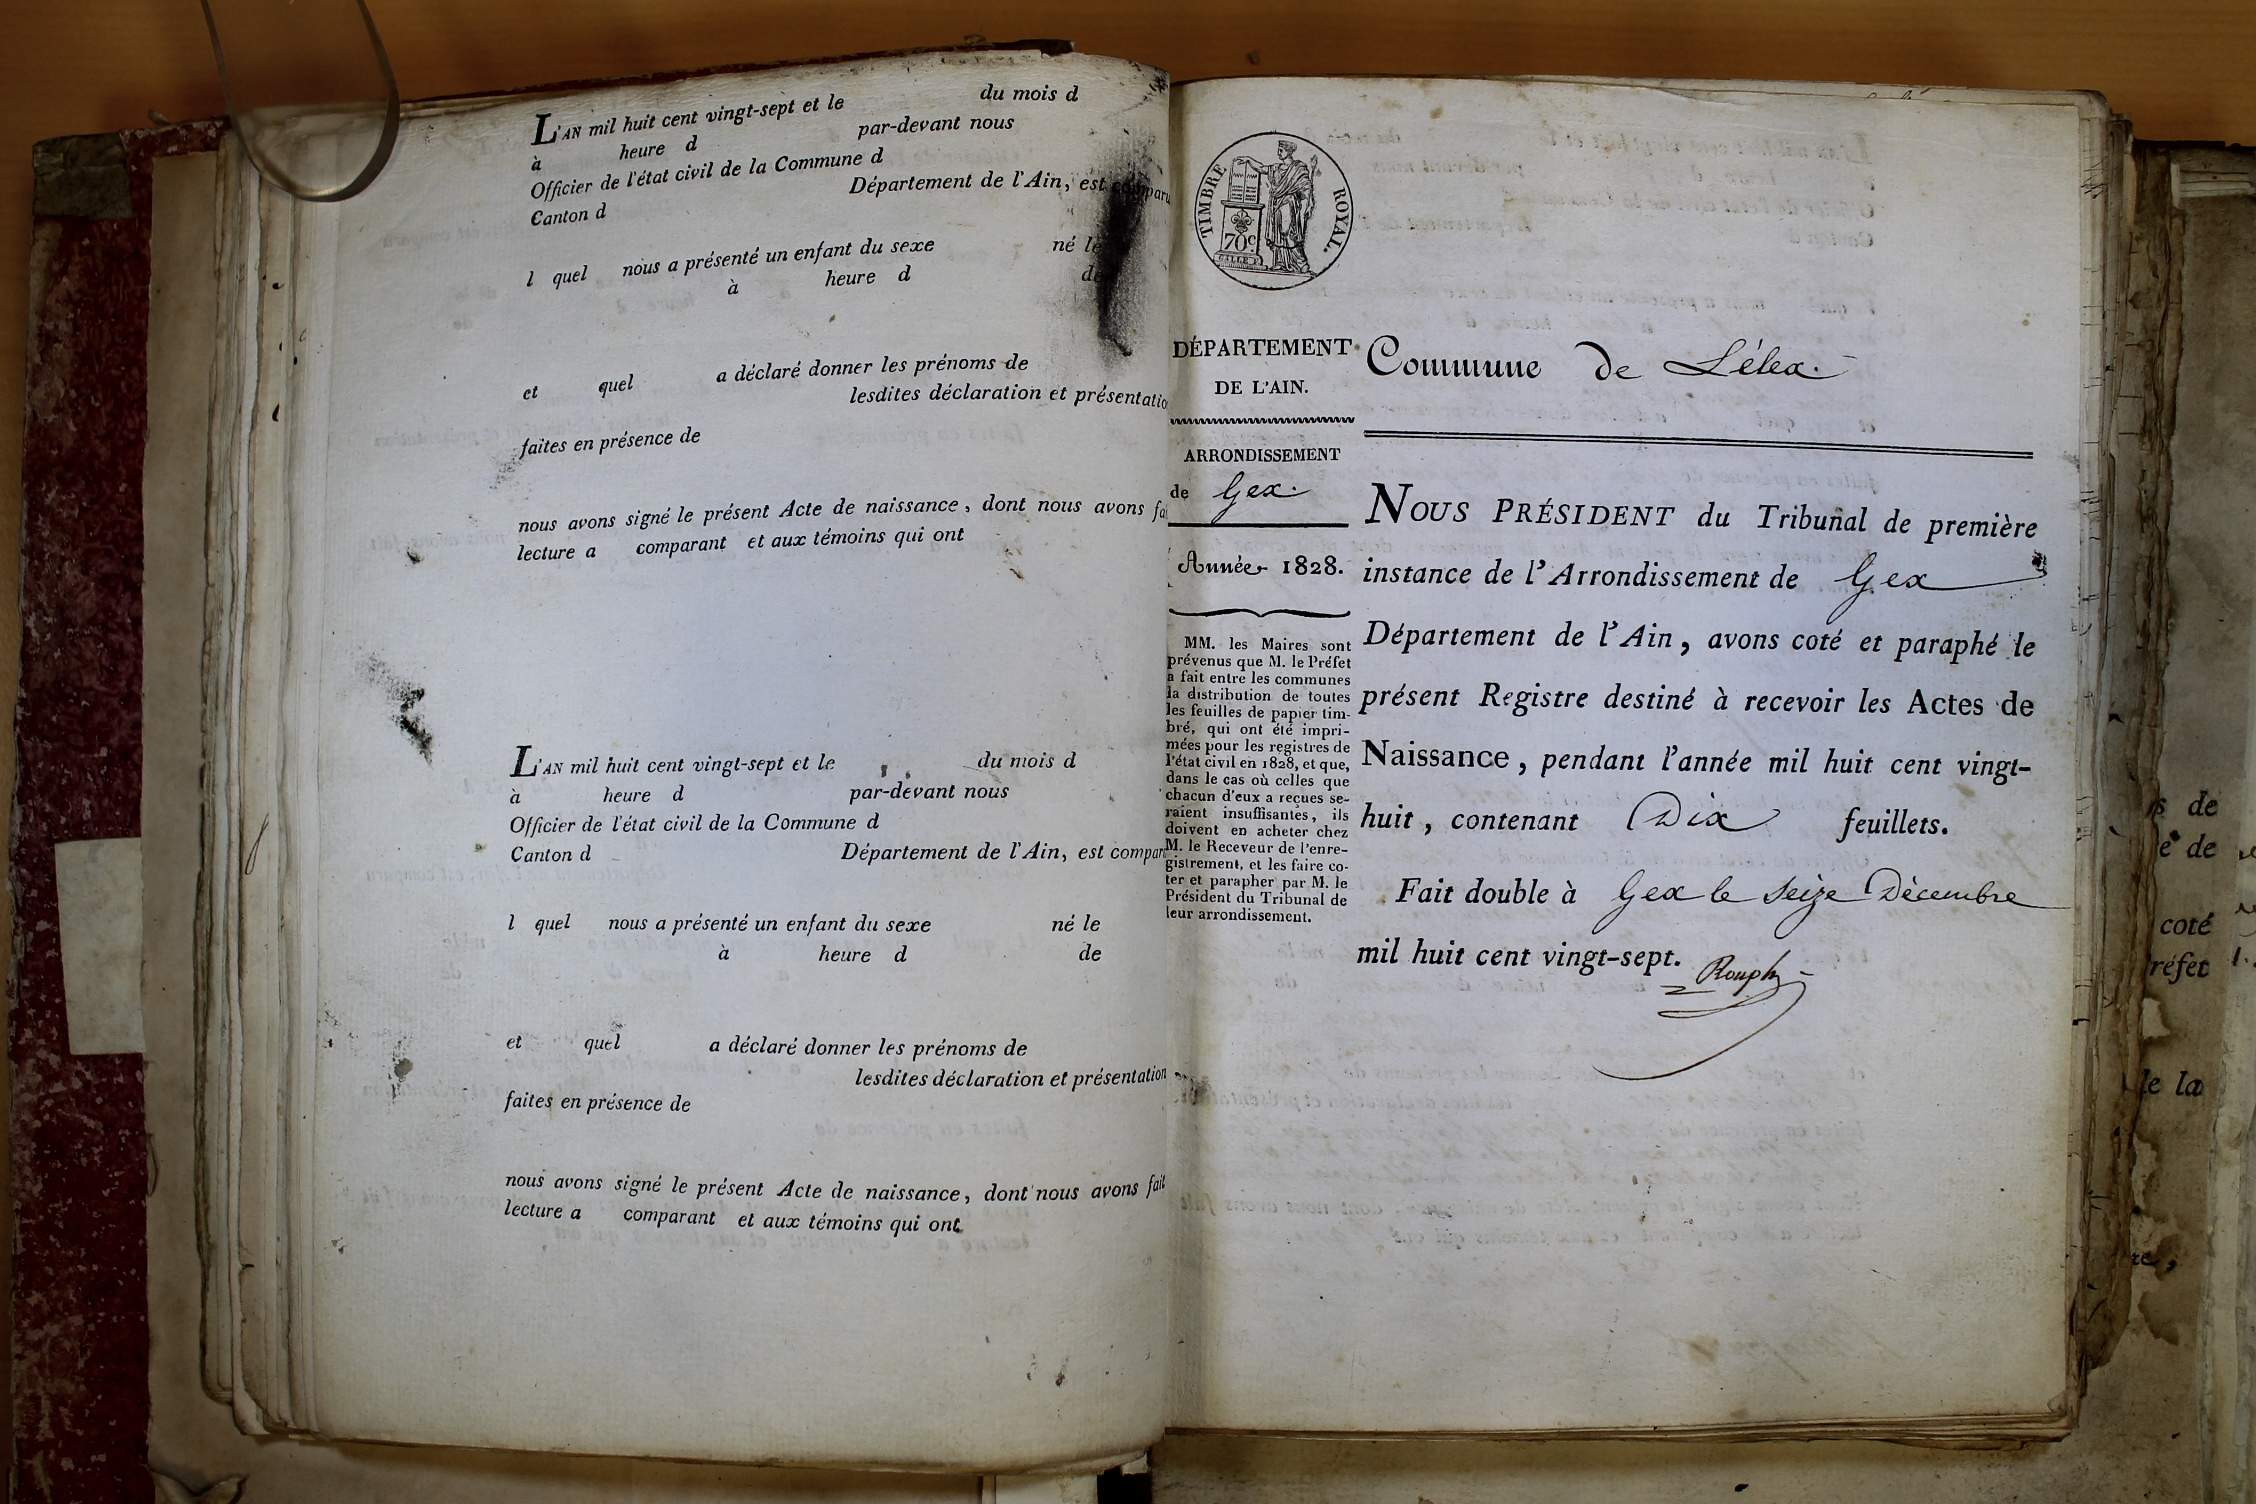 L'AN mil huit cent vingt-sept et le du mois d
à heure d par-devant nous
Officier de l'état civil de la Commune d
Canton d Département de l'Ain, est comparu
l quel nous a présenté un enfant du sexe né le
à heure d de
et quel a déclaré donner les prénoms de
lesdites déclaration et présentatio
faites en présence de
nous avons signé le présent Acte de naissance, dont nous avons fai
lecture a comparant et aux témoins qui ont
L'AN mil huit cent vingt-sept et le du mois d
à heure d par-devant nous
Officier de l'état civil de la Commune d
Canton d Département de l'Ain, est compar
l quel nous a présenté un enfant du sexe né le
à heure d de
et quel a déclaré donner les prénoms de
lesdites déclaration et présentation
faites en présence de
nous avons signé le présent Acte de naissance, dont nous avons fait
lecture a comparant et aux témoins qui ont
TIMBRE ROYAL.
70 c.
DÉPARTEMENT
DE L'AIN.
ARRONDISSEMENT
de Gex.
Année 1828.
MM. les Maires sont
prévenus que M. le Préfet
a fait entre les communes
la distribution de toutes
les feuilles de papier tim-
bré, qui ont été impri-
mées pour les registres de
l'état civil en 1828, et que,
dans le cas où celles que
chacun d'eux a reçues se-
raient insuffisantes, ils
doivent en acheter chez
M. le Receveur de l'enre-
gistrement, et les faire co-
ter et parapher par M. le
Président du Tribunal de
leur arrondissement.
Commune de Lélex.
NOUS PRÉSIDENT du Tribunal de première
instance de l'Arrondissement de Gex
Département de l'Ain, avons coté et paraphé le
présent Registre destiné à recevoir les Actes de
Naissance, pendant l'année mil huit cent vingt-
huit, contenant Dix feuillets.
Fait double à Gex le seize Décembre
mil huit cent vingt-sept.
de
de
coté
réfet
de la